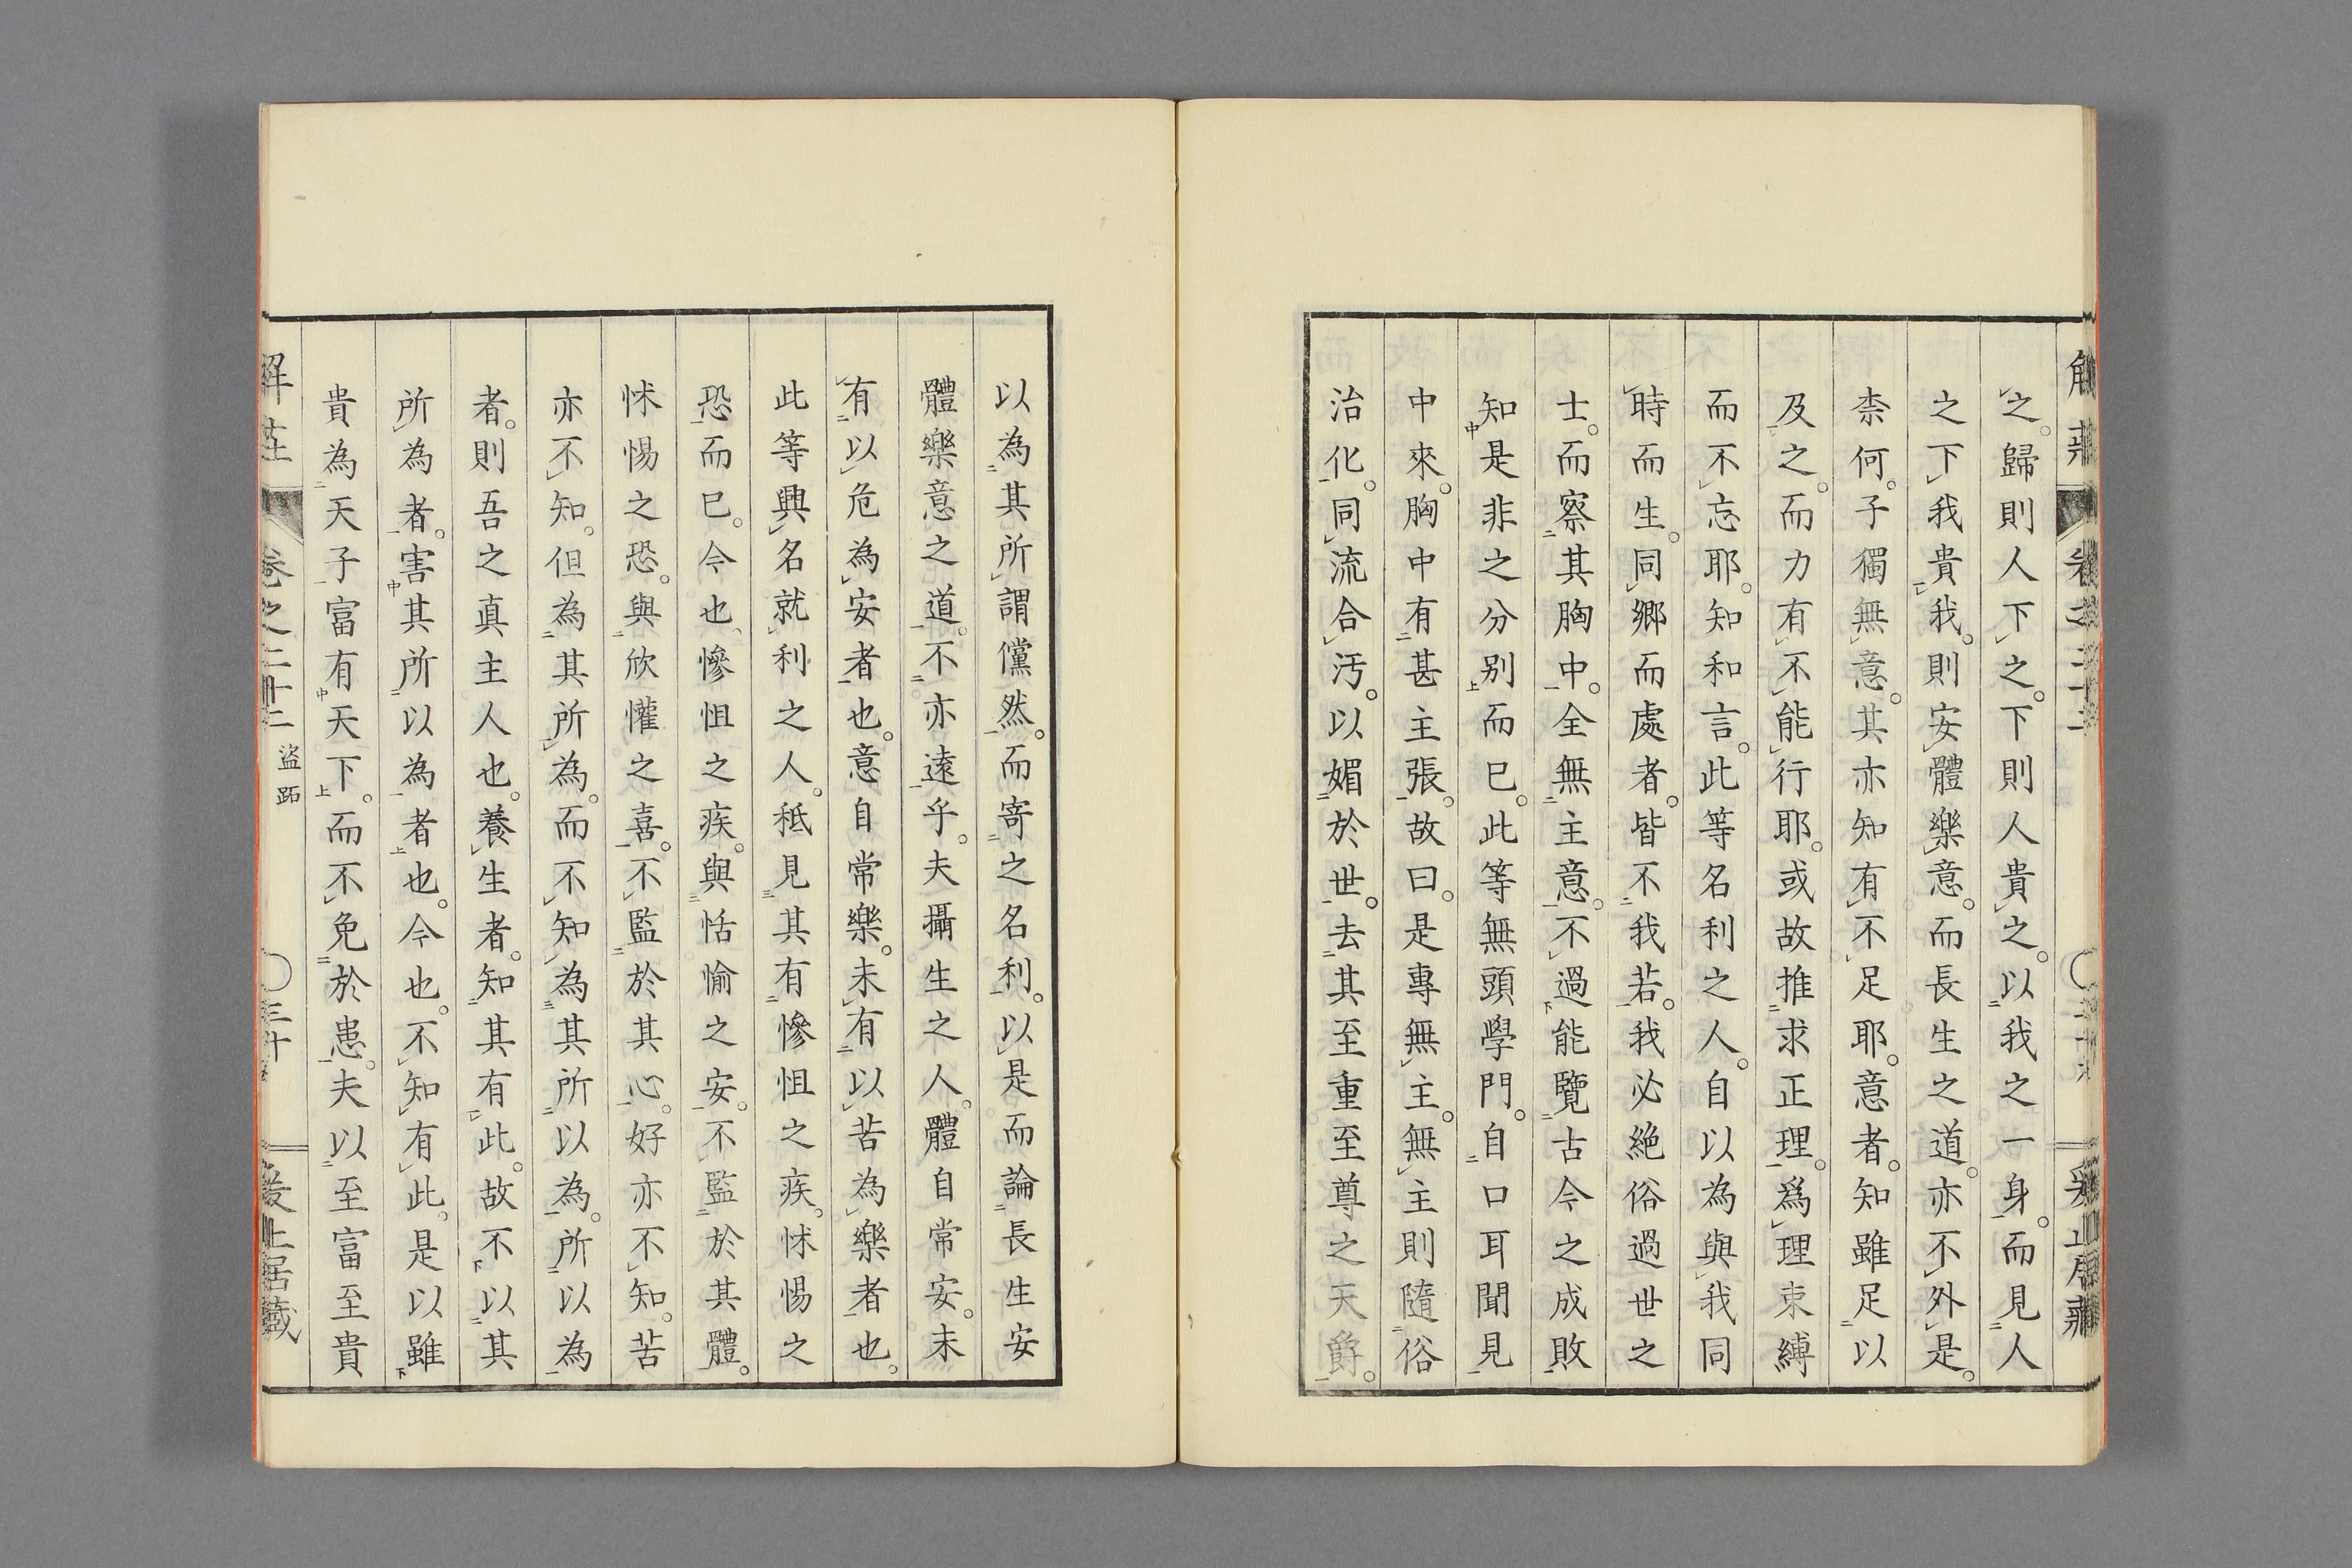 之。歸則人下之。下則人貴之。以我之一身。而見人
之下我貴我。則安體樂意。而長生之道。亦不外是。
柰何。子獨無意。其亦知有不足耶。意者。知雖足以
及之。而力有不能行耶。或故推求正理。爲理束縛
而不忘耶。知和言。此等名利之人。自以為與我同
時而生。同鄉而處者。皆不我若。我必絶俗過世之
士。而察其胸中。全無主意。不過能覽古今之成敗
知是非之分別而已。此等無頭學門。自口耳聞見
中來。胸中有甚主張。故曰。是專無主。無主則隨俗
治化。同流合汚。以媚於世。去其至重至尊之天爵。
以為其所謂儻然。而寄之名利。以是而論長生安
體樂意之道。不亦遠乎。夫攝生之人。體自常安。未
有以危為安者也。意自常樂。未有以苦為樂者也。
此等興名就利之人。秪見其有慘怛之疾。怵惕之
恐而已。今也、慘怛之疾。與恬愉之安。不監於其體。
怵惕之恐。與欣懽之喜。不監於其心。好亦不知。苦
亦不知。但為其所為。而不知為其所以為。所以為
者。則吾之真主人也。養生者。知其有此。故不以其
所為者。害其所以為者也。今也。不知有此。是以雖
貴為天子富有天下。而不免於患。夫以至富至貴
解莊 卷之二十二 盜跖 〇三十 嚴止居藏